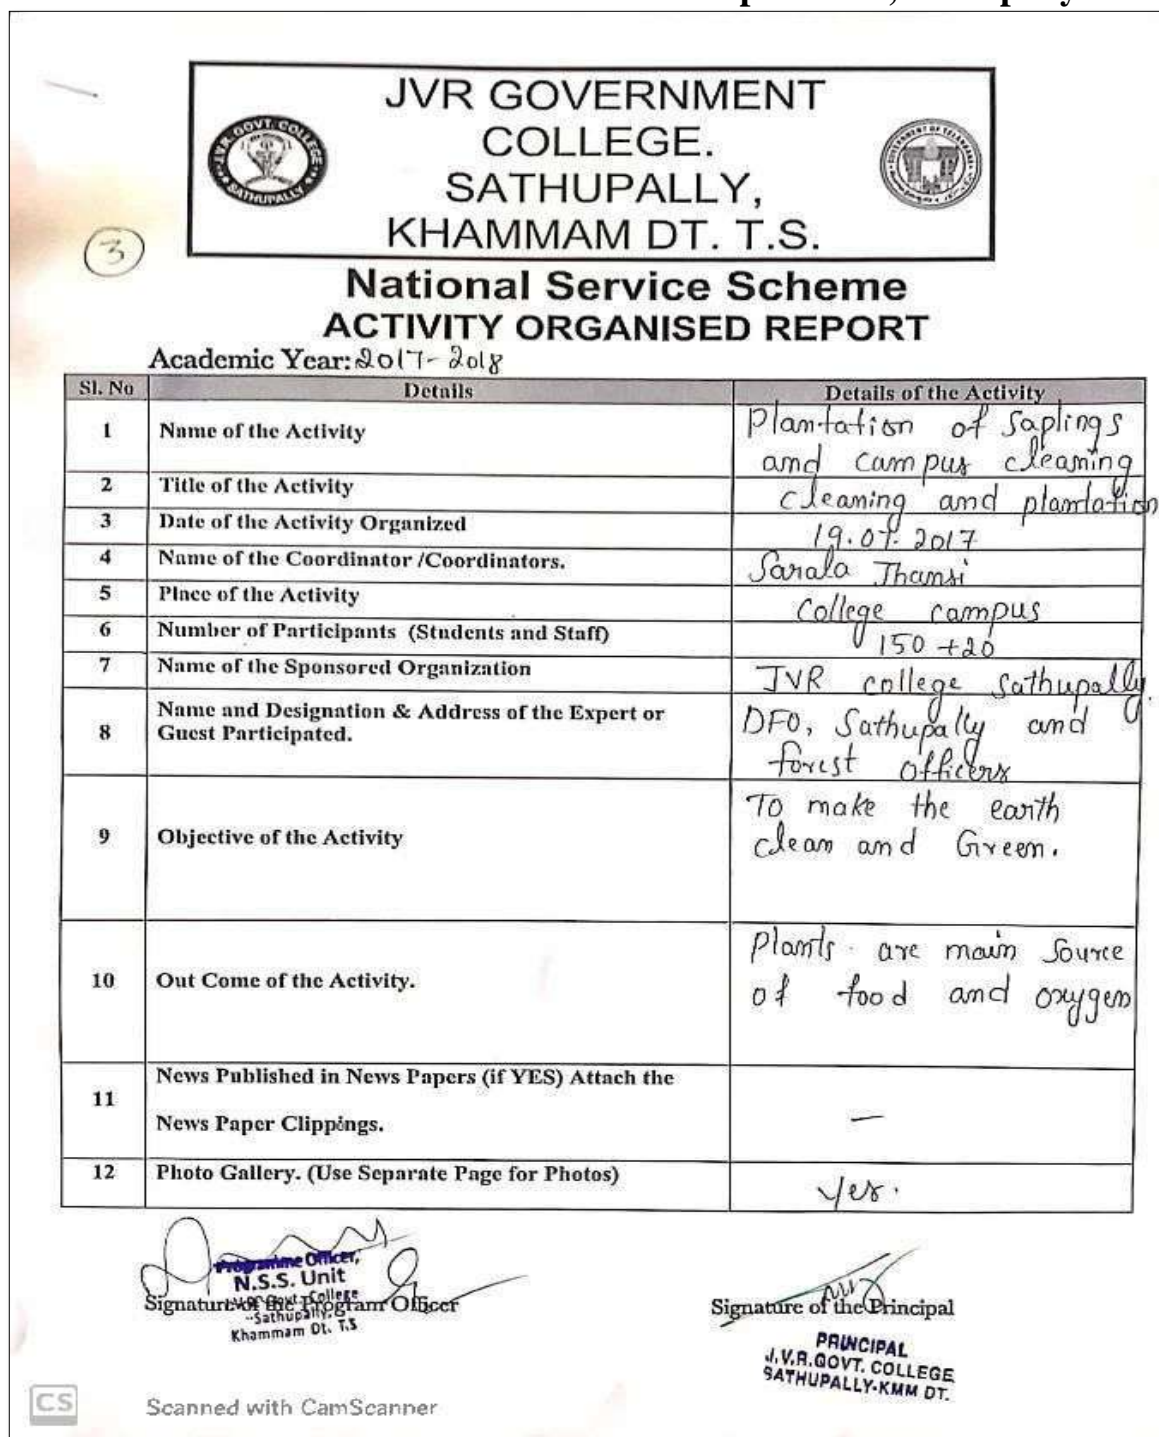 JVR GOVERNMENT
COLLEGE.
SATHUPALLY,
KHAMMAM DT. T.S.
J.V.R. GOVT. COLLEGE
SATHUPALLY
GOVERNMENT OF TELANGANA
3
National Service Scheme
ACTIVITY ORGANISED REPORT
Academic Year: 2017-2018
Sl. No Details Details of the Activity
1 Name of the Activity Plantation of Saplings
and campus cleaning
2 Title of the Activity cleaning and plantation
3 Date of the Activity Organized 19.07.2017
4 Name of the Coordinator /Coordinators. Sarala Jhansi
5 Place of the Activity College campus
6 Number of Participants (Students and Staff) 150 +20
7 Name of the Sponsored Organization JVR college Sathupally.
8 Name and Designation & Address of the Expert or
Guest Participated. DFO, Sathupally and
forest officers
9 Objective of the Activity To make the earth
clean and Green.
10 Out Come of the Activity. Plants are main source
of food and oxygen
11 News Published in News Papers (if YES) Attach the
News Paper Clippings. —
12 Photo Gallery. (Use Separate Page for Photos) Yes.
Programme Officer,
N.S.S. Unit
Signature of the Program Officer
Govt. College
Sathupally,
Khammam Dt. T.S
Signature of the Principal
PRINCIPAL
J.V.R.GOVT. COLLEGE
SATHUPALLY-KMM DT.
CS Scanned with CamScanner